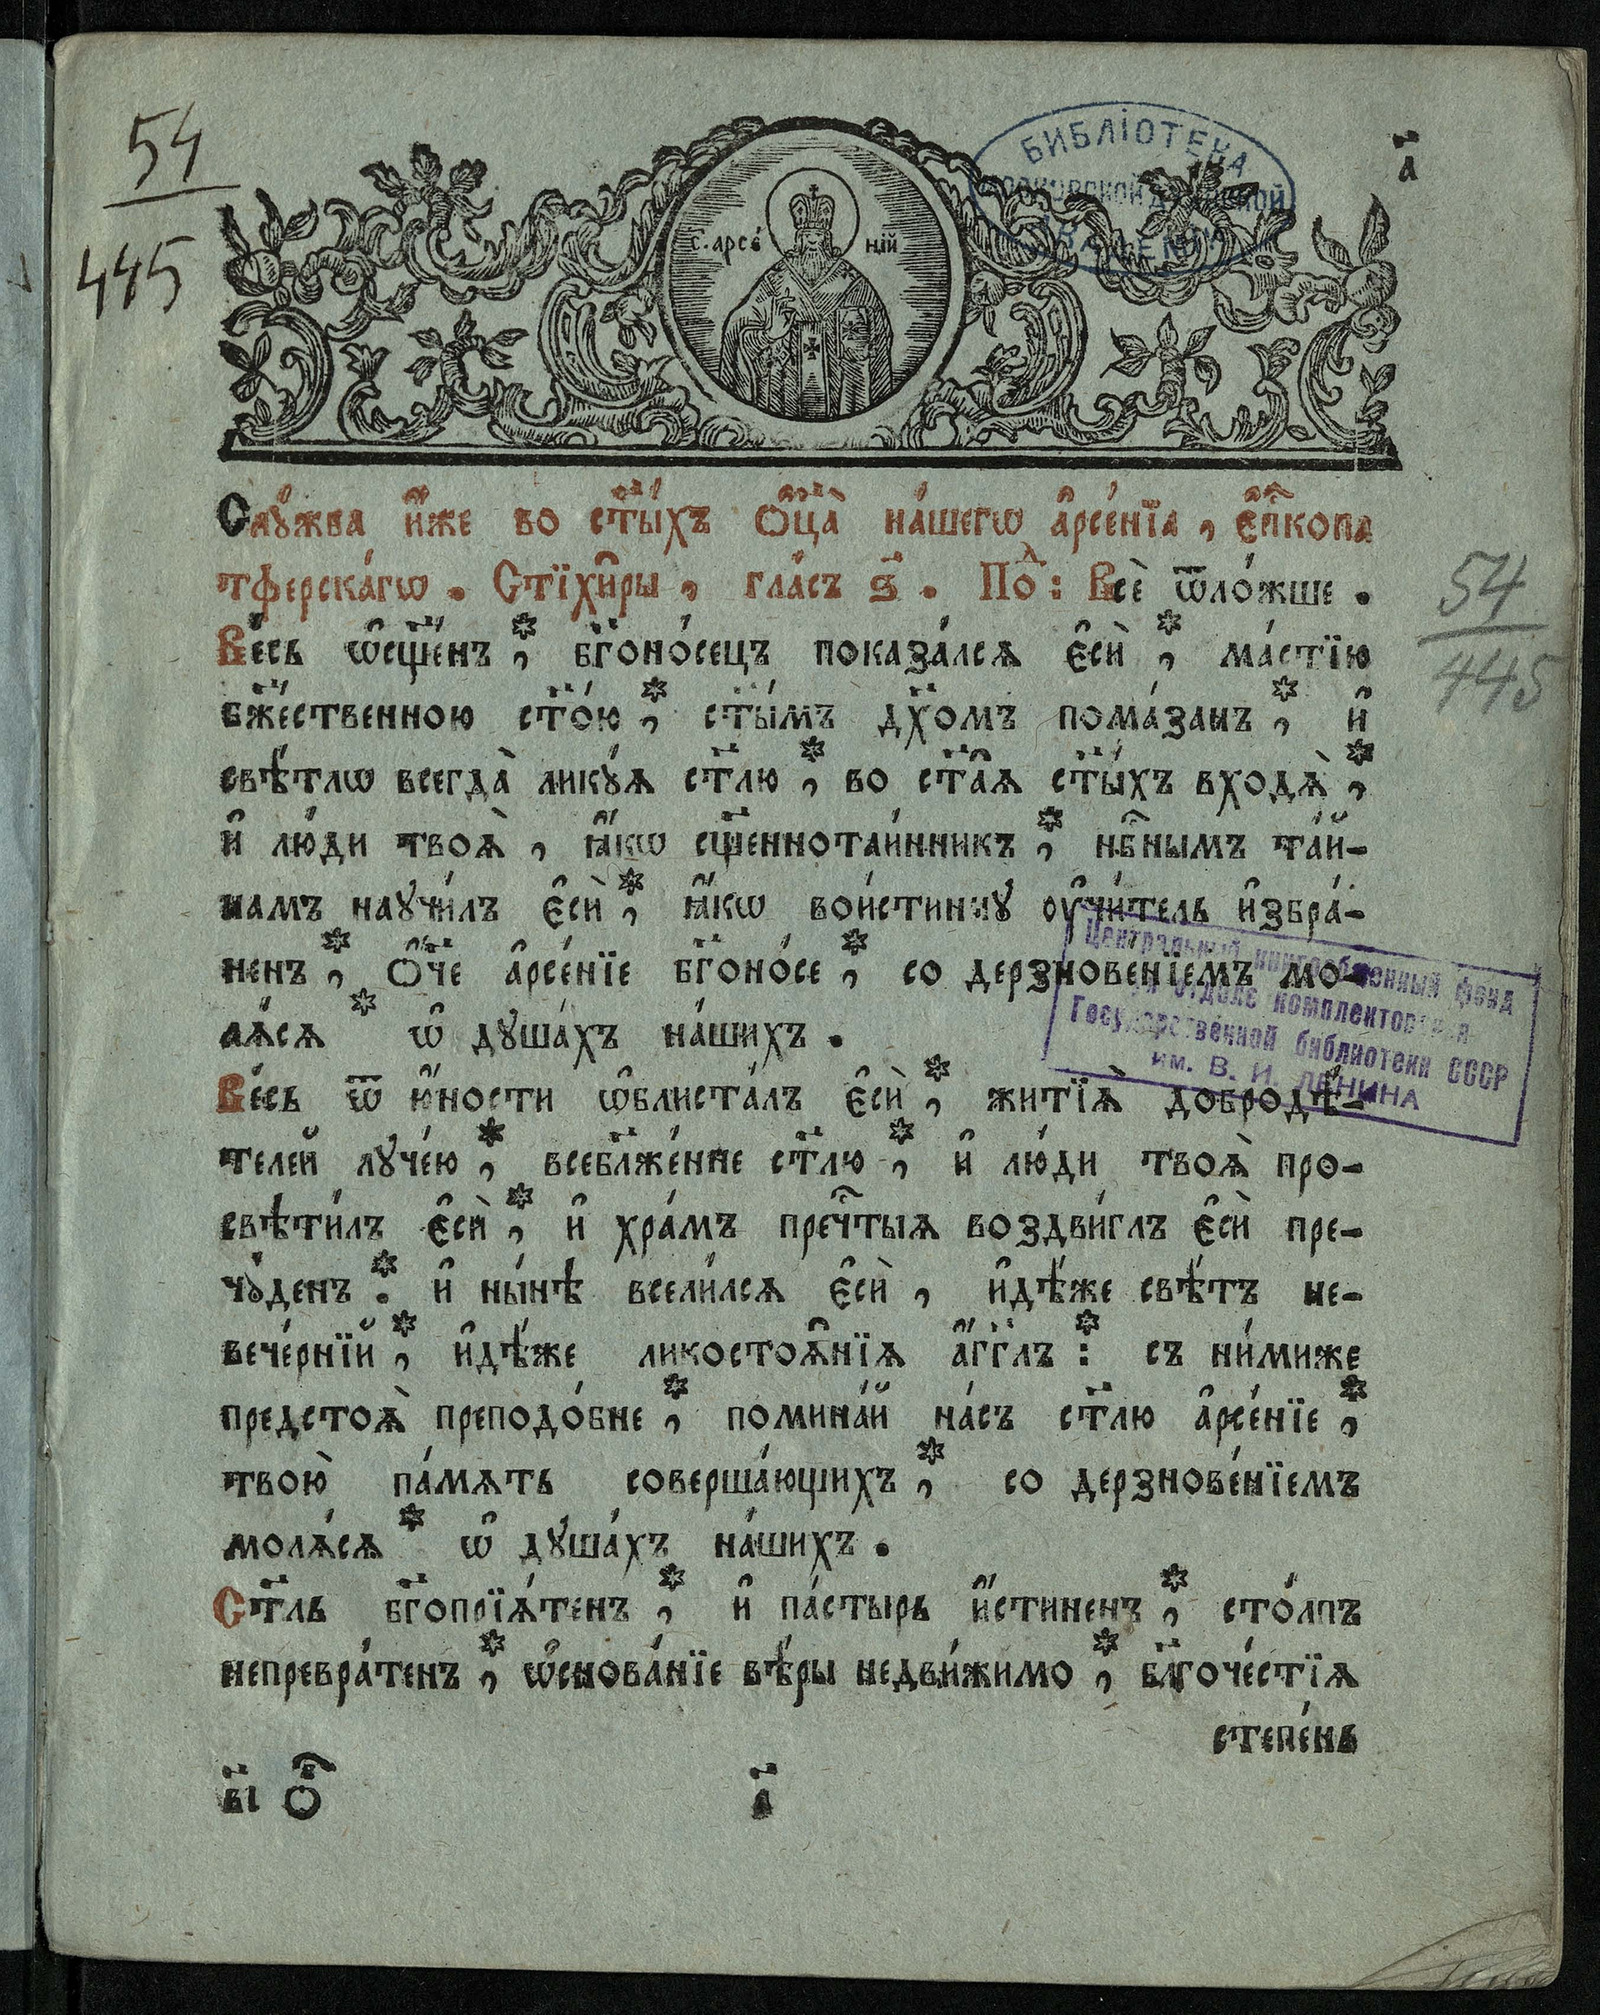 54
445
БИБЛІОТЕКА
МОСКОВСКОЙ ДУХОВНОЙ
АКАДЕМІИ
а҃
с. арсе́ ній
Слꙋ́жба и҆́же во ст҃ы́хъ ѻ҆ц҃а̀ на́шегѡ а҆рсе́нїа, є҆пⷭ҇копа
тферска́гѡ. Стїхи̑ры, гла́съ ѕ҃. Поⷣ: Всѐ ѿло́жше.
Ве́сь ѡ҆сщ҃е́нъ *, бг҃оно́сецъ показа́лсѧ є҆сѝ *, ма́стїю
бж҃е́ственною ст҃о́ю *, ст҃ы́мъ дх҃омъ пома́занъ *, и҆
свѣ́тлѡ всегда̀ ликꙋ́ѧ ст҃лю *, во ст҃а̑ѧ ст҃ы́хъ входѧ̀ *,
и҆ лю́ди твоѧ̀, ꙗ҆́кѡ сщ҃еннотаи́нникъ *, нбⷭ҇нымъ та́й-
намъ наꙋчи́лъ є҆сѝ *, ꙗ҆́кѡ вои́стиннꙋ ᲂу҆чи́тель и҆збра́-
ненъ *, ѻ҆́ч҃е а҆рсе́нїе бг҃оно́се *, со дерзнове́нїемъ мо-
лѧ́сѧ * ѡ҆ дꙋша́хъ на́шихъ.
Ве́сь ѿ ю҆́ности ѡ҆блиста́лъ є҆сѝ *, житїѧ̀ добродѣ́-
телей лꙋче́ю *, всебл҃же́нне ст҃лю *, и҆ лю́ди твоѧ̀ про-
свѣти́лъ є҆сѝ *, и҆ хра́мъ пречⷭ҇тыѧ воздви́глъ є҆сѝ пре-
чꙋ́денъ *. и҆ ны́нѣ всели́лсѧ є҆сѝ, и҆дѣ́же свѣ́тъ не-
вече́рнїй *, и҆дѣ́же ликостоѧ̑нїѧ а҆́гг҃лъ *: съ ни́миже
предстоѧ̀ преподо́бне *, помина́й на́съ ст҃лю а҆рсе́нїе *,
твою̀ па́мѧть соверша́ющихъ *, со дерзнове́нїемъ
молѧ́сѧ * ѡ҆ дꙋша́хъ на́шихъ.
Ст҃ль бг҃опрїѧ́тенъ *, и҆ па́стырь и҆́стиненъ *, сто́лпъ
непревра́тенъ *, ѡ҆снова́нїе вѣ́ры недви́жимо *, бл҃гоче́стїѧ
степе́нь
в҃і ѻ҆ а҃
54
445
Центральный книгообменный фонд
при отделе комплектования
Государственной библиотеки СССР
им. В. И. ЛЕНИНА